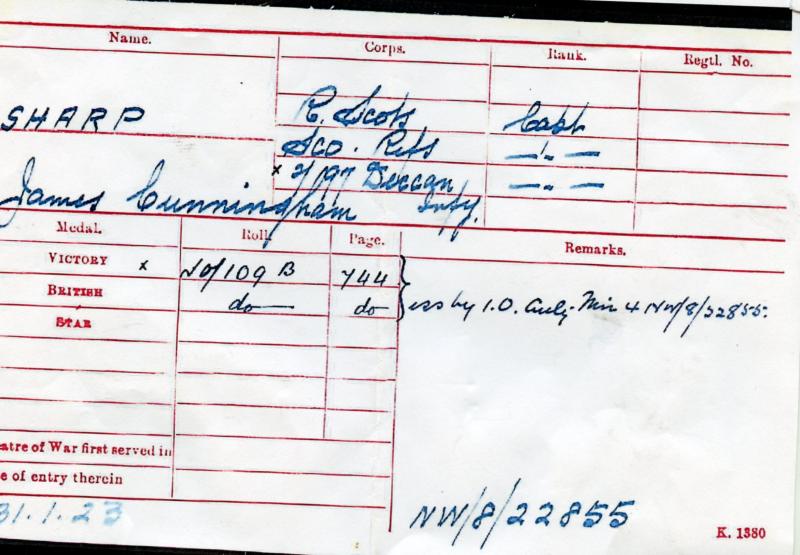 Name. Corps. Rank. Regtl. No.
SHARP R. Scots Capt
Sco. Rifs —"—
x 2/97 Deccan Infy. —"—
James Cunningham
Medal. Roll. Page. Remarks.
VICTORY x JO/109 B 744
BRITISH do do iss by I.O. Auty. Min 4 NW/8/22855.
STAR
eatre of War first served in
e of entry therein
31.1.23 NW/8/22855
K. 1380